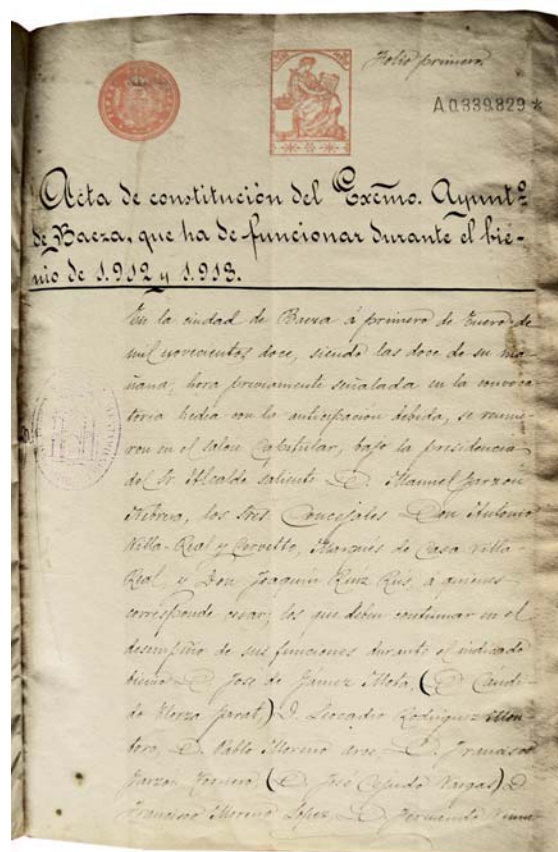 Folio primero.
A0339829 *
Acta de constitución del Excmo. Ayuntº
de Baeza, que ha de funcionar durante el bie-
nio de 1.912 y 1.913.
En la ciudad de Baeza á primero de Enero de
mil novecientos doce, siendo las doce de su ma
ñana, hora previamente señalada en la convoca
toria hecha con la anticipación debida, se reunie
ron en el salon Capitular, bajo la presidencia
del Sr. Alcalde saliente D. Manuel Garzón
los Sres Concejales Don Antonio
Villa-Real y Cervetto, Marqués de Casa Villa-
Real, y Don Joaquin Ruiz Rus, a quienes
corresponde cesar; los que deben continuar en el
desempeño de sus funciones durante el indicado
bienio D. José de Gámez Mota, (D. Candi-
do Elorza Garat) D. Leocadio Rodriguez Mon-
toro, D. Pablo Moreno Arce, D. Francisco
Garzon (D. José Cejudo Vargas) D.
Francisco Moreno Lopez, D. Fernando